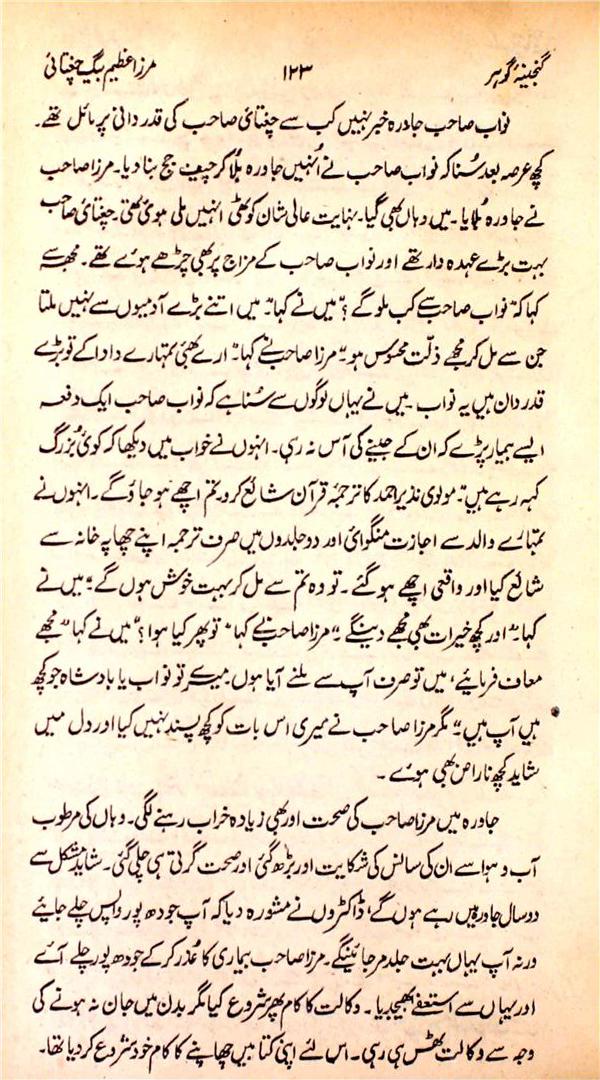 گنجینۂ گوہر ۱۲۳ مرزا عظیم بیگ چغتائی
نواب صاحب جاورہ خبر نہیں کب سے چغتائی صاحب کی قدر دانی پر مائل تھے۔
کچھ عرصہ بعد سُنا کہ نواب صاحب نے اُنہیں جاورہ بُلا کر چیف جج بنا دیا۔ مرزا صاحب
نے جاورہ بُلایا۔ میں وہاں بھی گیا۔ نہایت عالی شان کوٹھی انہیں ملی ہوئی تھی۔ چغتائی صاحب
بہت بڑے عہدہ دار تھے اور نواب صاحب کے مزاج پر بھی چڑھے ہوئے تھے۔ مجھ سے
کہا کہ "نواب صاحب سے کب ملو گے؟" میں نے کہا "میں اتنے بڑے آدمیوں سے نہیں ملتا
جن سے مل کر مجھے ذلّت محسوس ہو۔" مرزا صاحب نے کہا "ارے بھئی تمہارے دادا کے تو بڑے
قدر دان ہیں یہ نواب۔ میں نے یہاں لوگوں سے سُنا ہے کہ نواب صاحب ایک دفعہ
ایسے بیمار پڑے کہ ان کے جینے کی آس نہ رہی۔ انہوں نے خواب میں دیکھا کہ کوئی بُزرگ
کہہ رہے ہیں "مولوی نذیر احمد کا ترجمۂ قرآن شائع کرو، تم اچھے ہو جاؤ گے۔ انہوں نے
تمہارے والد سے اجازت منگوائی اور دو جلدوں میں صرف ترجمہ اپنے چھاپہ خانہ سے
شائع کیا اور واقعی اچھے ہو گئے۔ تو وہ تم سے مل کر بہت خوش ہوں گے۔" میں نے
کہا "اور کچھ خیرات بھی مجھے دینگے۔" مرزا صاحب نے کہا "تو پھر کیا ہوا؟" میں نے کہا "مجھے
معاف فرمایئے، میں تو صرف آپ سے ملنے آیا ہوں۔ میرے تو نواب یا بادشاہ جو کچھ
ہیں آپ ہیں۔" مگر مرزا صاحب نے میری اس بات کو کچھ پسند نہیں کیا اور دل میں
شاید کچھ ناراض بھی ہوئے۔
جاورہ میں مرزا صاحب کی صحت اور بھی زیادہ خراب رہنے لگی۔ وہاں کی مرطوب
آب و ہوا سے ان کی سانس کی شکایت اور بڑھ گئی اور صحت گرتی ہی چلی گئی۔ شاید مشکل سے
دو سال جاورہ میں رہے ہوں گے، ڈاکٹروں نے مشورہ دیا کہ آپ جودھ پور واپس چلے جایئے
ورنہ آپ یہاں بہت جلد مر جائینگے۔ مرزا صاحب بیماری کا عُذر کر کے جودھ پور چلے آئے
اور یہاں سے استعفے بھیجدیا۔ وکالت کا کام پھر شروع کیا مگر بدن میں جان نہ ہونے کی
وجہ سے وکالت ٹھس ہی رہی۔ اس لئے اپنی کتابیں چھاپنے کا کام خود شروع کر دیا تھا۔